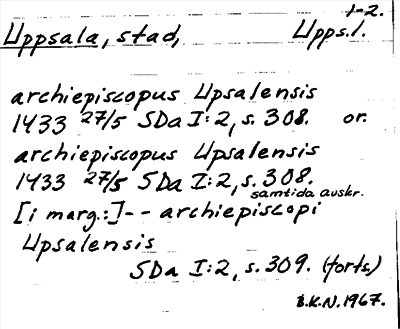 1-2.
Uppsala, stad, Upps.l.
archiepiscopus Upsalensis
1433 27/5 SDa I:2, s. 308. or.
archiepiscopus Upsalensis
1433 27/5 SDa I:2, s. 308.
samtida avskr.
[i marg.:]-- archiepiscopi
Upsalensis
SDa I:2, s. 309. (forts.)
B.K.N. 1967.